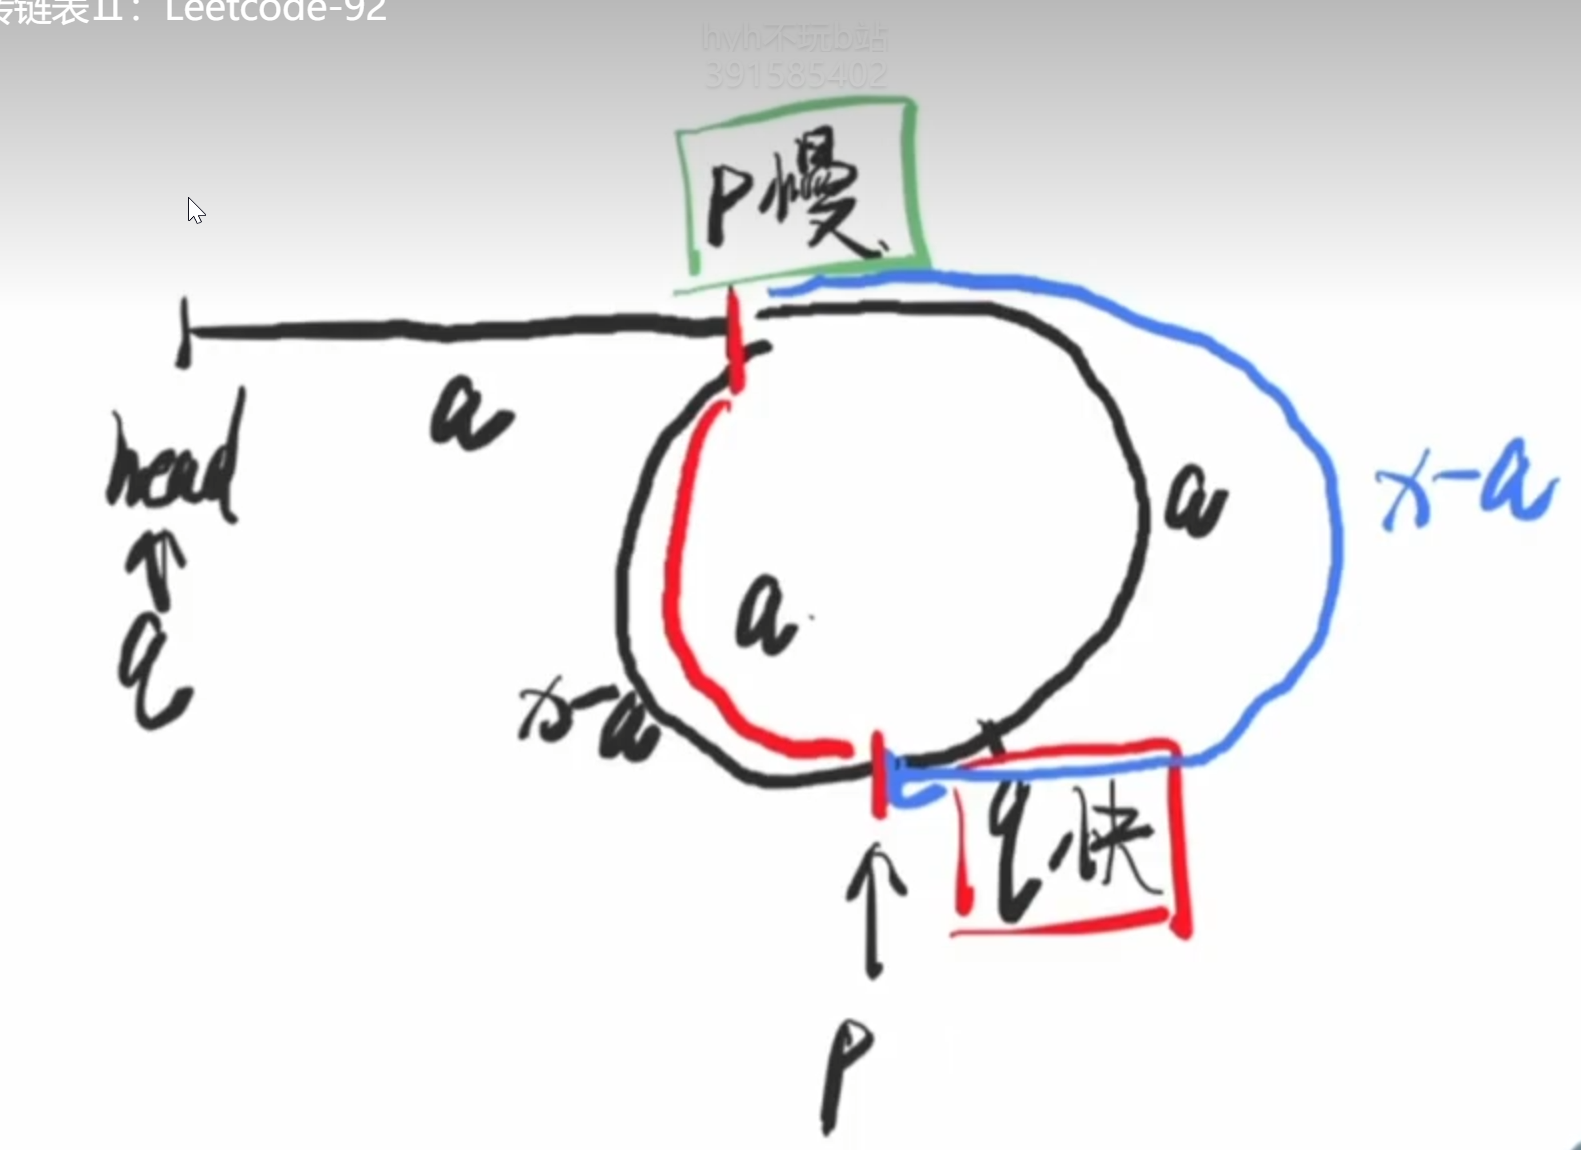 转链表Ⅱ：Leetcode-92
hyh不玩b站
391585402
p慢
a
head
q
a
x-a
a
x-a
q快
p